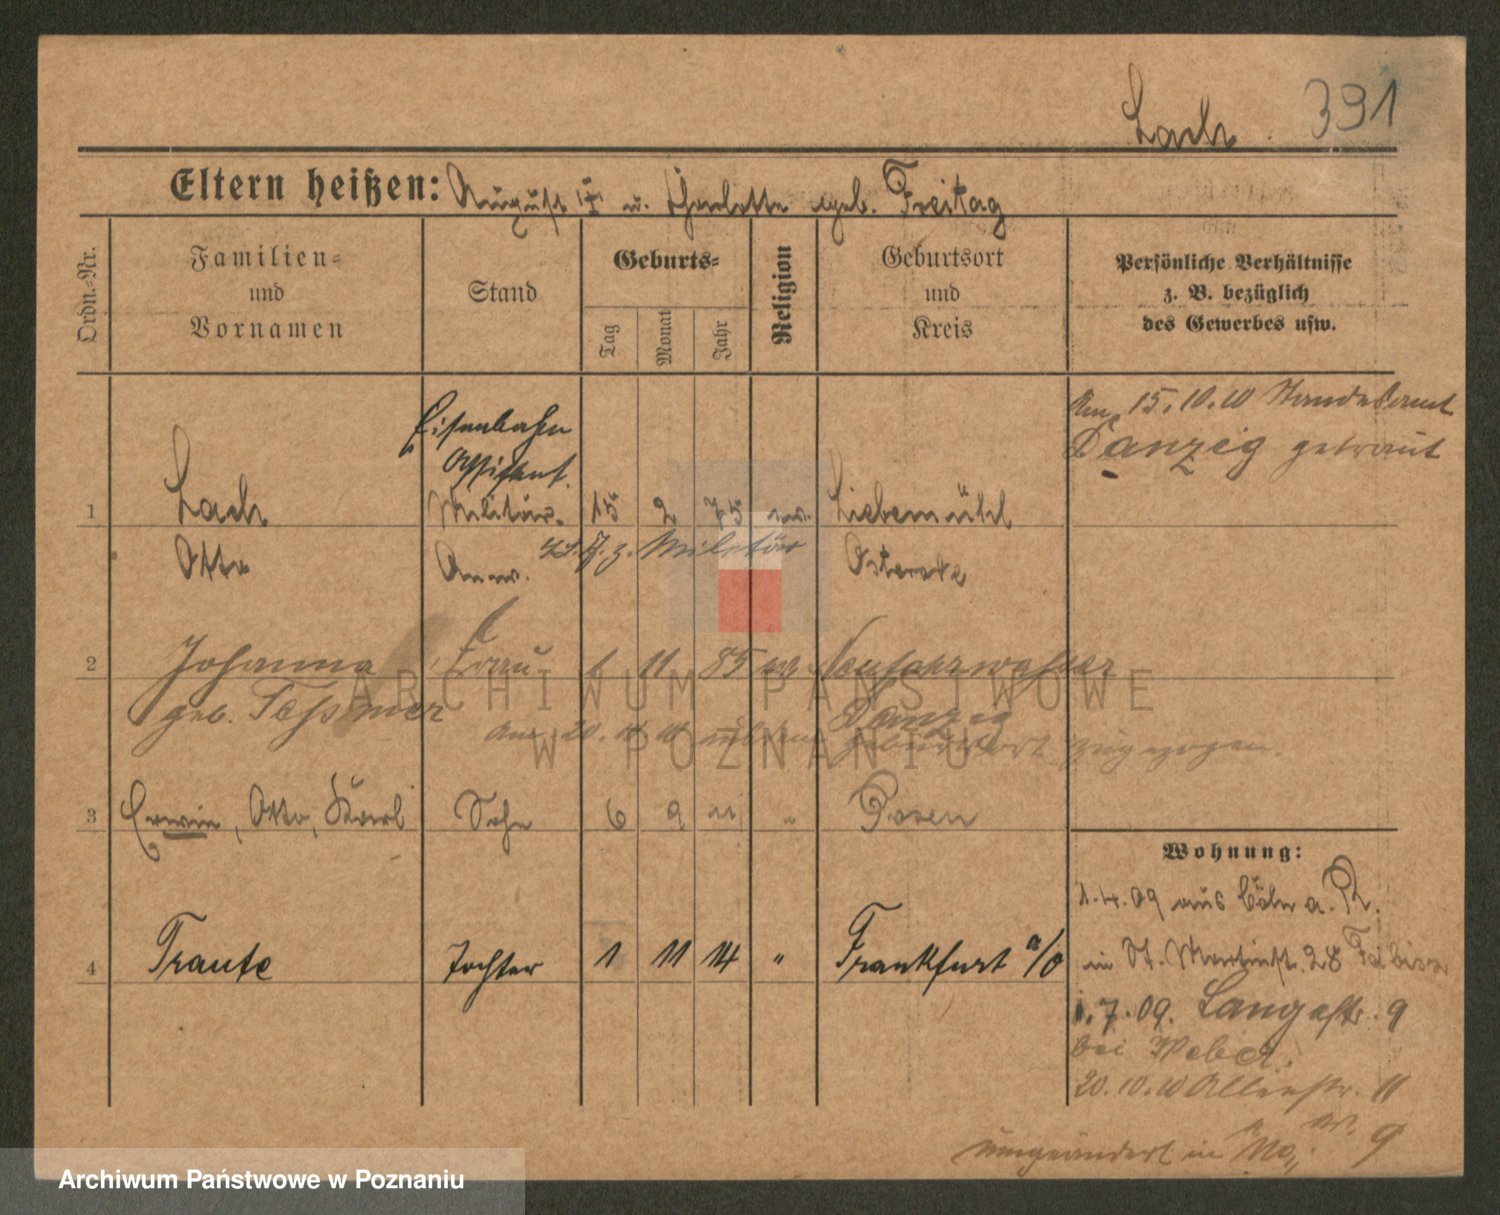 Lach. 391
Eltern heißen: August u. Charlotte geb. Freitag
Ordn.-Nr.
Familien-
und
Vornamen
Stand
Geburts-
Tag
Monat
Jahr
Religion
Geburtsort
und
Kreis
Persönliche Verhältnisse
z. B. bezüglich
des Gewerbes usw.
Am 15.10.10 Standesamt
Danzig getraut
Eisenbahn
Assistent.
1 Lach Militär- 15 2 75 ev. Liebemühl
Otto Anw. z. Militär Osterode
2 Johanna Frau 1 11 85 ev. Neufahrwasser
geb. Tessmer Danzig
Am 20.10.10 Geburtsort zugezogen.
3 Erwin, Otto, Karl Sohn 6 9 11 " Posen
Wohnung:
1.4.09 aus Cöln a. Rh.
4 Traute Tochter 1 11 14 " Frankfurt a/O
in St. Martinstr. 28
1.7.09. Langestr. 9
bei Weber.
20.10.10 11
umgeändert in No. 9
ARCHIWUM PAŃSTWOWE
W POZNANIU
Archiwum Państwowe w Poznaniu